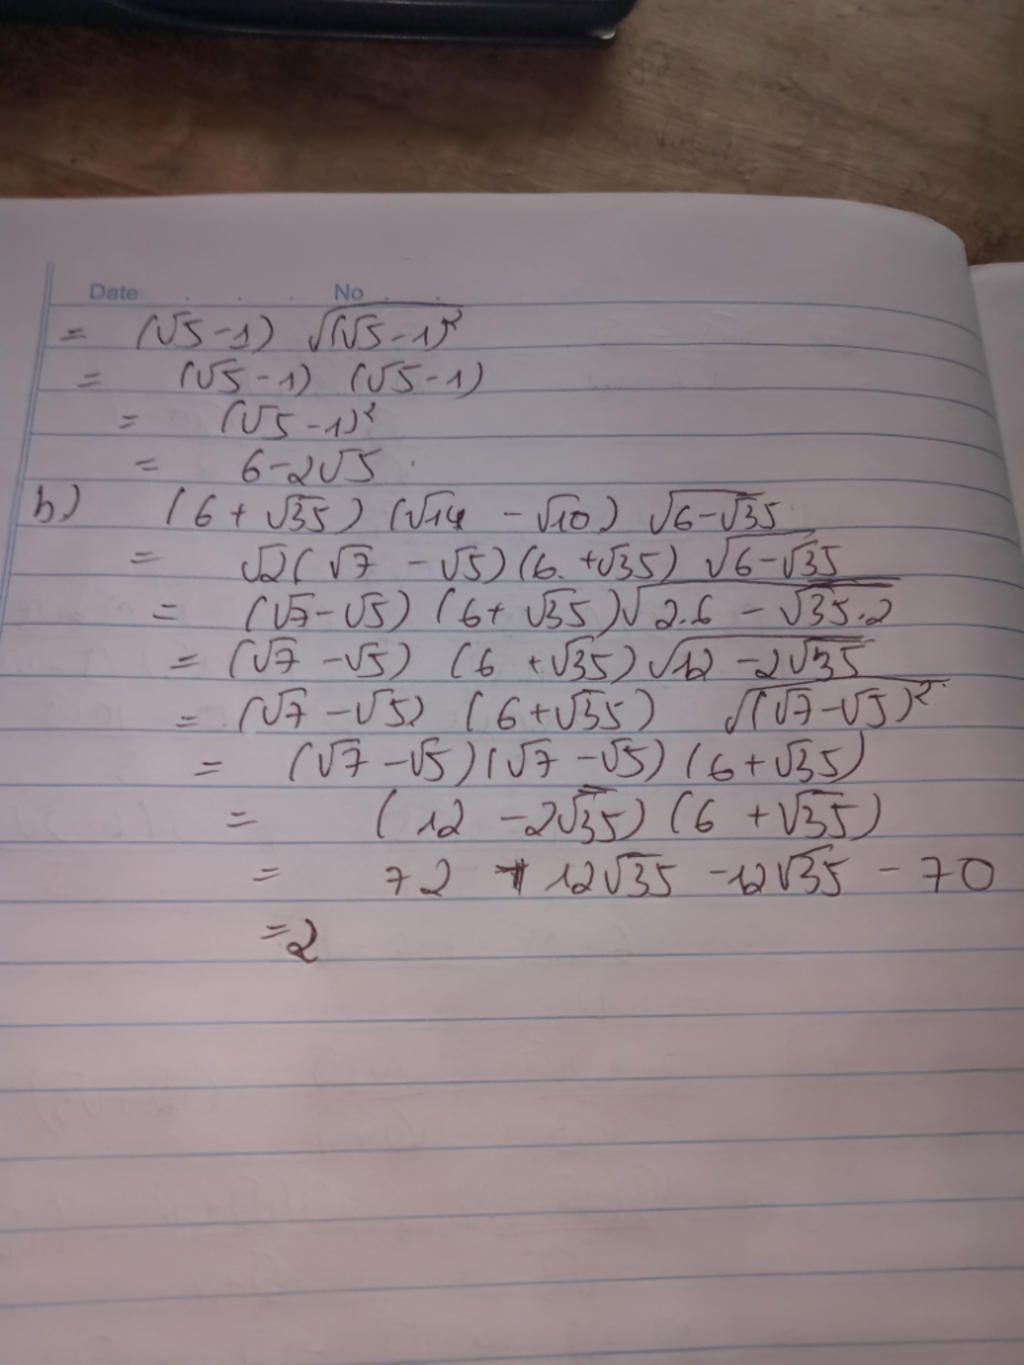 Date No
= (√5 - 1) √(√5 - 1)²
= (√5 - 1) (√5 - 1)
= (√5 - 1)²
= 6 - 2√5 .
b) (6 + √35) (√14 - √10) √6-√35
= √2 (√7 - √5) (6. + √35) √6-√35
= (√7 - √5) (6 + √35) √2.6 - √35.2
= (√7 - √5) (6 + √35) √12 - 2√35
= (√7 - √5) (6 + √35) √(√7 - √5)²
= (√7 - √5) (√7 - √5) (6 + √35)
= (12 - 2√35) (6 + √35)
= 72 + 12√35 - 12√35 - 70
= 2